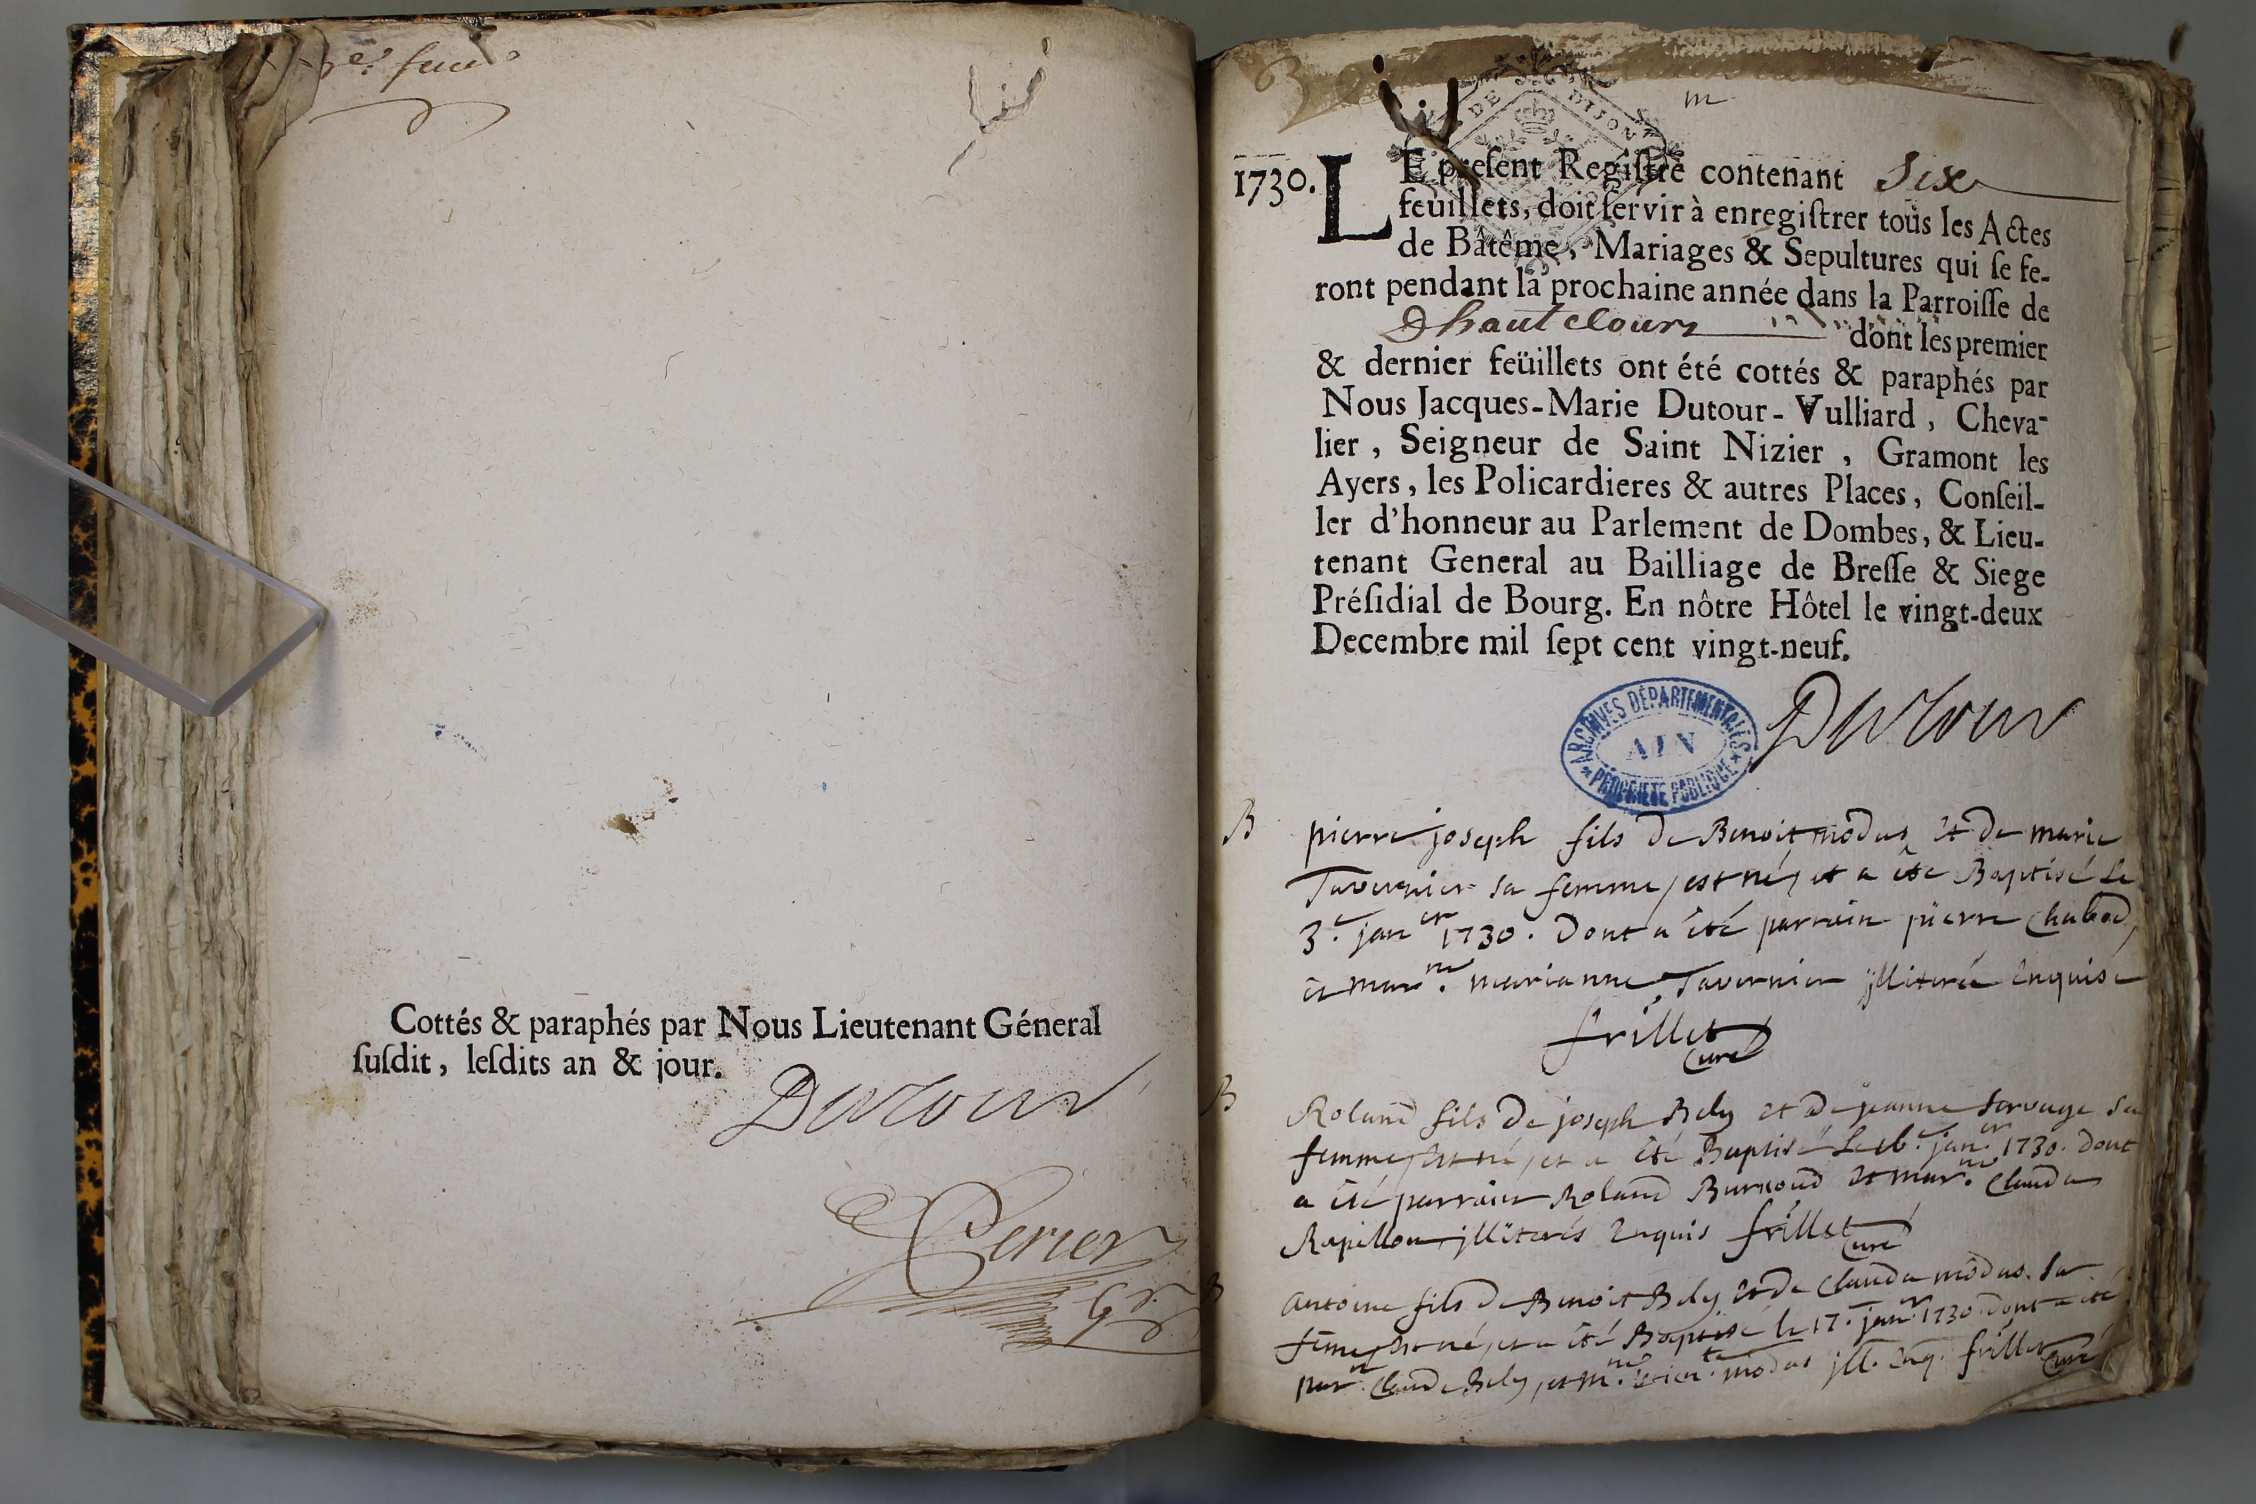 Cottés & paraphés par Nous Lieutenant Géneral
ſuſdit, leſdits an & jour.
Dutour
Perier
DE DIJON
1730.
LE preſent Regiſtre contenant Six
feüillets, doit ſervir à enregiſtrer tous les Actes
de Bâtême, Mariages & Sepultures qui ſe fe-
ront pendant la prochaine année dans la Parroiſſe de
Dhautecourt dont les premier
& dernier feüillets ont été cottés & paraphés par
Nous Jacques-Marie Dutour-Vulliard, Cheva-
lier, Seigneur de Saint Nizier, Gramont les
Ayers, les Policardieres & autres Places, Conſeil-
ler d'honneur au Parlement de Dombes, & Lieu-
tenant General au Bailliage de Breſſe & Siege
Préſidial de Bourg. En nôtre Hôtel le vingt-deux
Decembre mil ſept cent vingt-neuf.
Dutour
ARCHIVES DÉPARTEMENTALES
AIN
* PROPRIETE PUBLIQUE *
B
pierre joseph fils de Benoit modas et de marie
Tavernier sa femme, est né, et a été Baptisé le
3.e jan.er 1730. Dont a été parrain pierre Chabod,
et mar.ne marianne Tavernier jlliterée enquise
frillet
Curé
B
Roland fils de joseph Bely et de jeanne servage sa
femme, est né, et a été Baptisé le jan.er 1730. dont
a été parrain Roland Burnoud et mar.ne Clauda
Rapillon jlliterés enquis frillet
Curé
B
Antoine fils de Benoit Bely et de Clauda modas sa
feme, est né, et a été Baptisé le 17.e jan.er 1730 dont a été
par.n Claude Bely, et m.ne modas jll. enq. frillet
Curé